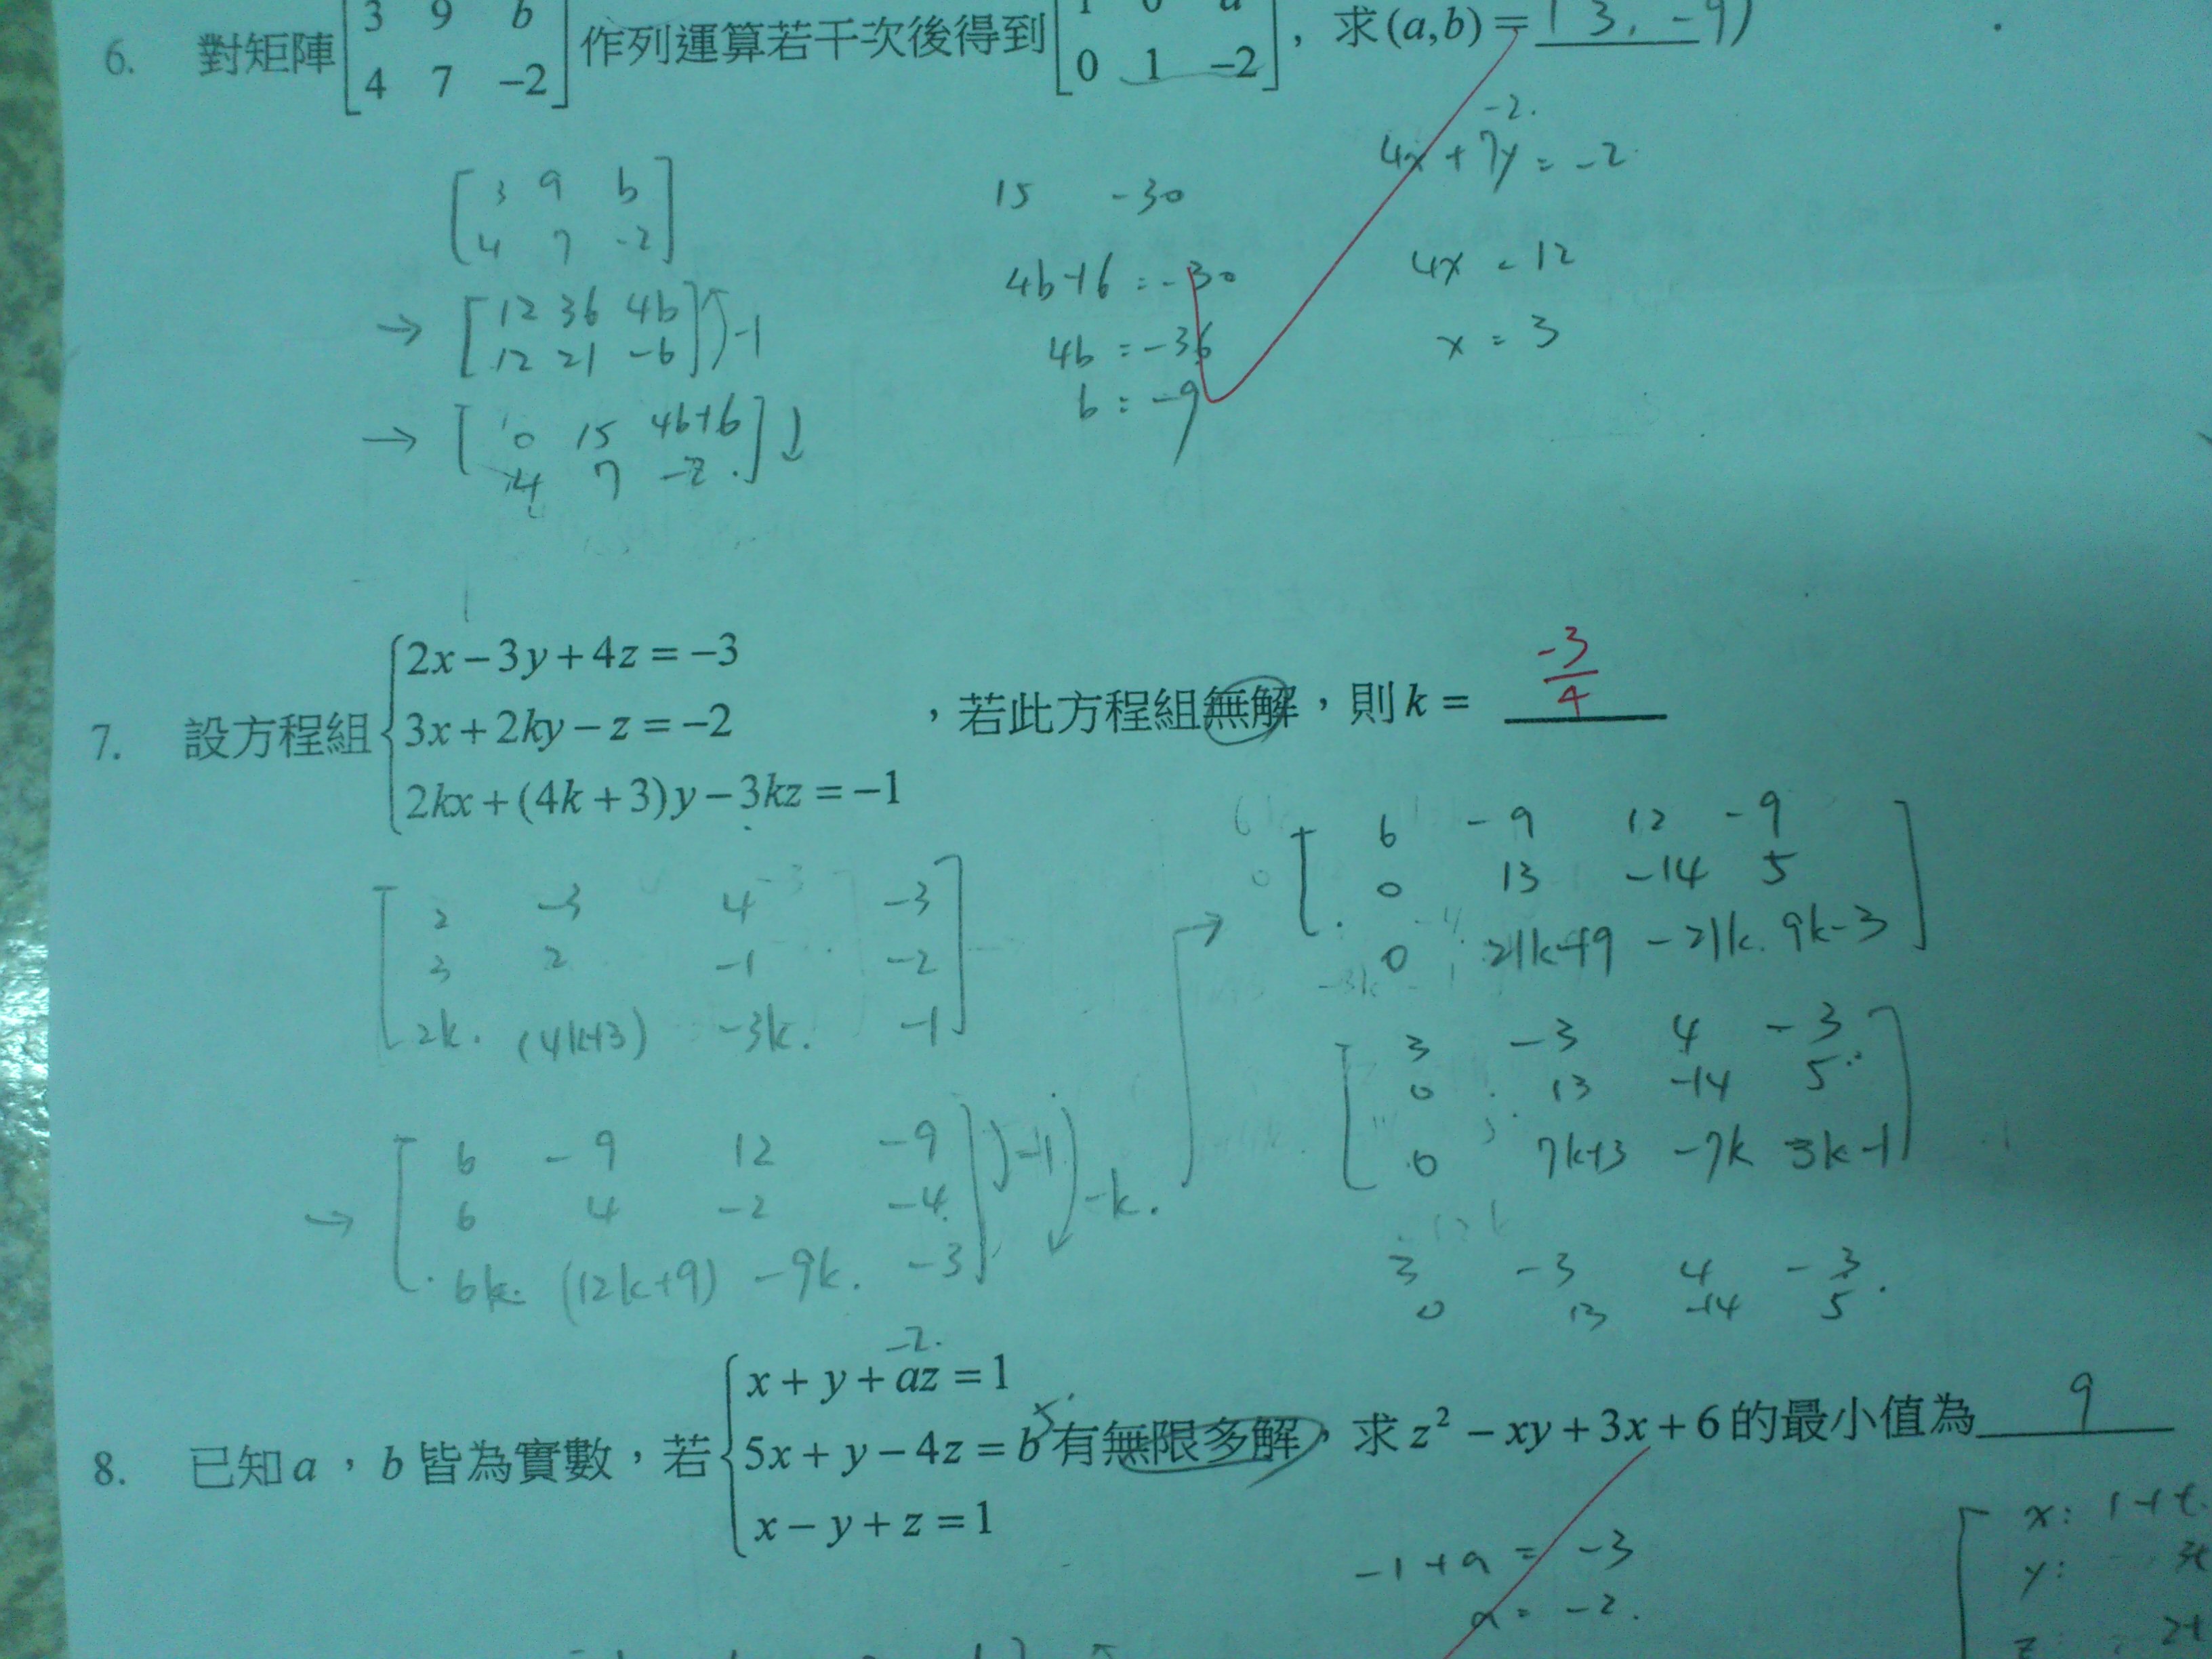 6. 對矩陣 [3 9 b 作列運算若干次後得到 [1 0 a , 求(a,b)= (3, -9)
4 7 -2] 0 1 -2]
[3 9 b
4 7 -2]
→ [12 36 4b
12 21 -6] -1
→ [0 15 4b+6]
4 7 -2
15 -30
4b+6 = -30
4b = -36
b = -9
-2.
4x + 7y = -2
4x = 12
x = 3
7. 設方程組 { 2x-3y+4z=-3
3x+2ky-z=-2 ,若此方程組無解,則k= -3/4
2kx+(4k+3)y-3kz=-1
[2 -3 4 -3
3 2 -1 -2
2k. (4k+3) -3k. -1]
→ [6 -9 12 -9
6 4 -2 -4
6k. (12k+9) -9k. -3] -1 -k.
→ [6 -9 12 -9
0 13 -14 5
0 21k+9 -21k. 9k-3]
[3 -3 4 -3
0 13 -14 5
0 7k+3 -7k 3k-1]
3 -3 4 -3
0 13 -14 5
8. 已知a,b皆為實數,若 { x+y+az=1
5x+y-4z=b 有無限多解,求z²-xy+3x+6的最小值為 9
x-y+z=1
-2.
5
-1+a = -3
a = -2.
x: 1+t
y: 3t
z: 2t